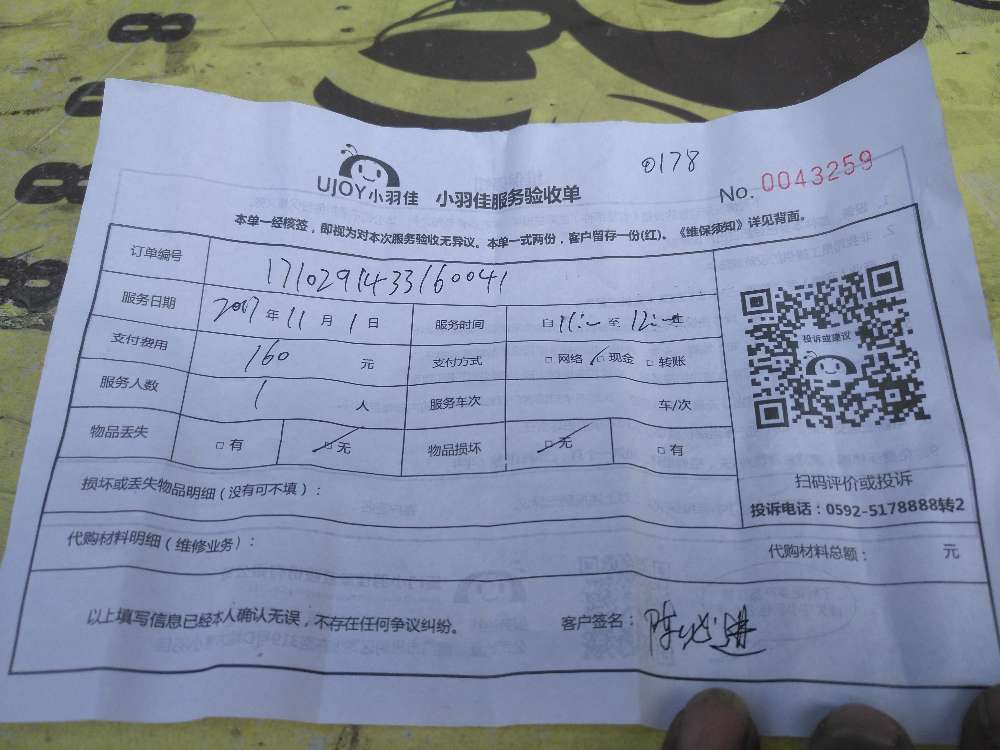 0178
UJOY小羽佳 小羽佳服务验收单 No. 0043259
本单一经核签，即视为对本次服务验收无异议。本单一式两份，客户留存一份(红)。《维保须知》详见背面。
订单编号 1710291433160041
服务日期 2017年11月1日 服务时间 自11:00至12:00
支付费用 160元 支付方式 □网络 ☑现金 □转账
服务人数 1人 服务车次 车/次
物品丢失 □有 ☑无 物品损坏 ☑无 □有
投诉或建议
扫码评价或投诉
投诉电话：0592-5178888转2
损坏或丢失物品明细（没有可不填）：
代购材料明细（维修业务）： 代购材料总额： 元
以上填写信息已经本人确认无误，不存在任何争议纠纷。 客户签名：陈必进